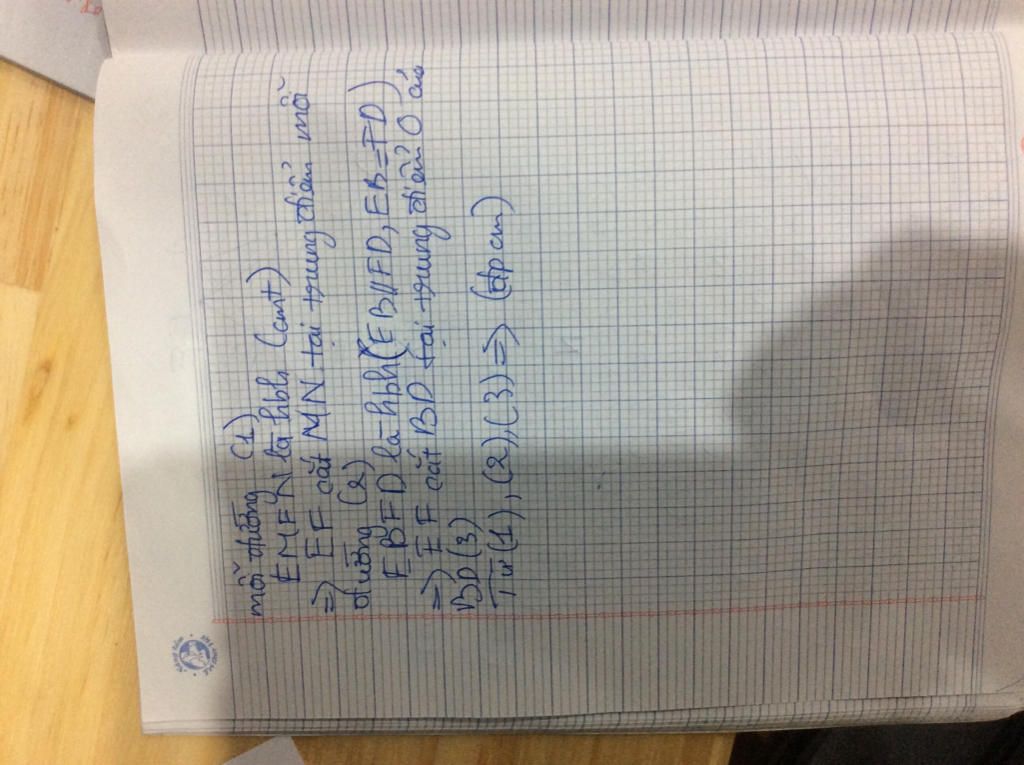 mỗi đường (1)
EMFN là hbh (cmt)
=) EF cắt MN tại trung điểm mỗi
đường (2)
EBFD là hbh (EB//FD, EB=FD)
=) EF cắt BD tại trung điểm O của
BD (3)
Từ (1), (2), (3) =) (đpcm)